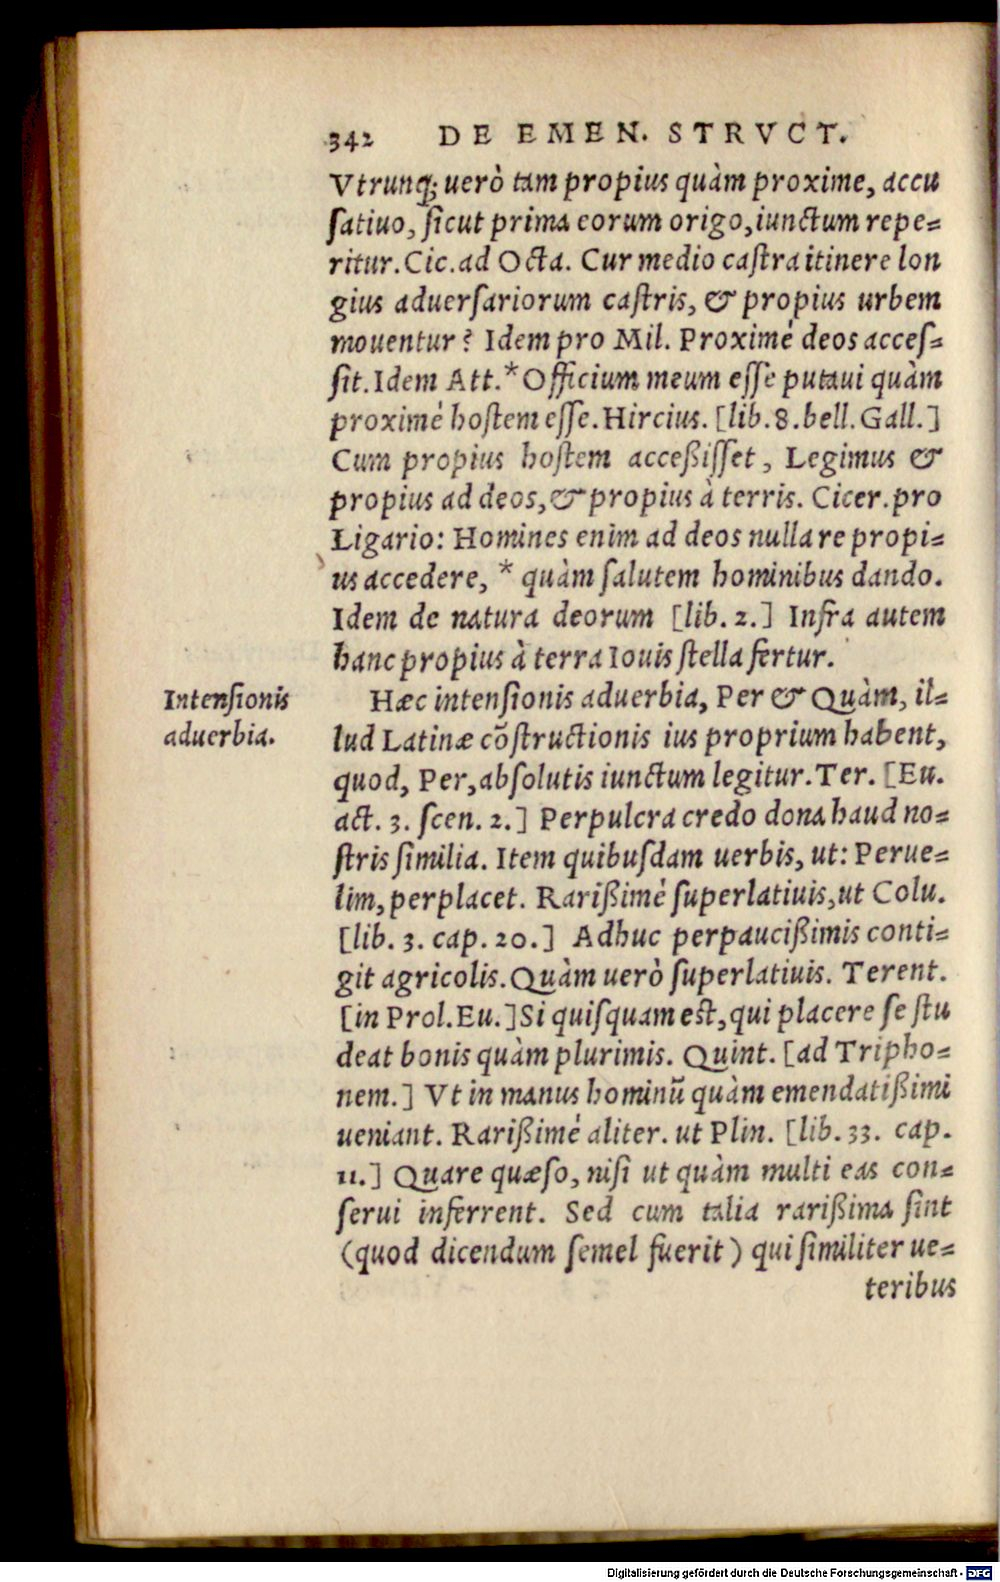 342 DE EMEN. STRVCT.
Vtrunq; uerò tam propius quàm proxime, accu
ſatiuo, ſicut prima eorum origo, iunctum repe-
ritur. Cic. ad Octa. Cur medio caſtra itinere lon
gius aduerſariorum caſtris, & propius urbem
mouentur? Idem pro Mil. Proximè deos acceſ-
ſit. Idem Att.* Officium meum eſſe putaui quàm
proximè hoſtem eſſe. Hircius. [lib. 8. bell. Gall.]
Cum propius hoſtem acceßiſſet, Legimus &
propius ad deos, & propius à terris. Cicer. pro
Ligario: Homines enim ad deos nulla re propi-
us accedere, * quàm ſalutem hominibus dando.
Idem de natura deorum [lib. 2.] Infra autem
hanc propius à terra Iouis ſtella fertur.
Intenſionis
aduerbia.
Hæc intenſionis aduerbia, Per & Quàm, il-
lud Latinæ cõſtructionis ius proprium habent,
quod, Per, abſolutis iunctum legitur. Ter. [Eu.
act. 3. ſcen. 2.] Perpulcra credo dona haud no-
ſtris ſimilia. Item quibuſdam uerbis, ut: Perue-
lim, perplacet. Rarißimè ſuperlatiuis, ut Colu.
[lib. 3. cap. 20.] Adhuc perpaucißimis conti-
git agricolis. Quàm uerò ſuperlatiuis. Terent.
[in Prol. Eu.] Si quiſquam eſt, qui placere ſe ſtu
deat bonis quàm plurimis. Quint. [ad Tripho-
nem.] Vt in manus hominũ quàm emendatißimi
ueniant. Rarißimè aliter. ut Plin. [lib. 33. cap.
11.] Quare quæſo, niſi ut quàm multi eas con-
ſerui inferrent. Sed cum talia rarißima ſint
(quod dicendum ſemel fuerit) qui ſimiliter ue-
teribus
Digitalisierung gefördert durch die Deutsche Forschungsgemeinschaft - DFG